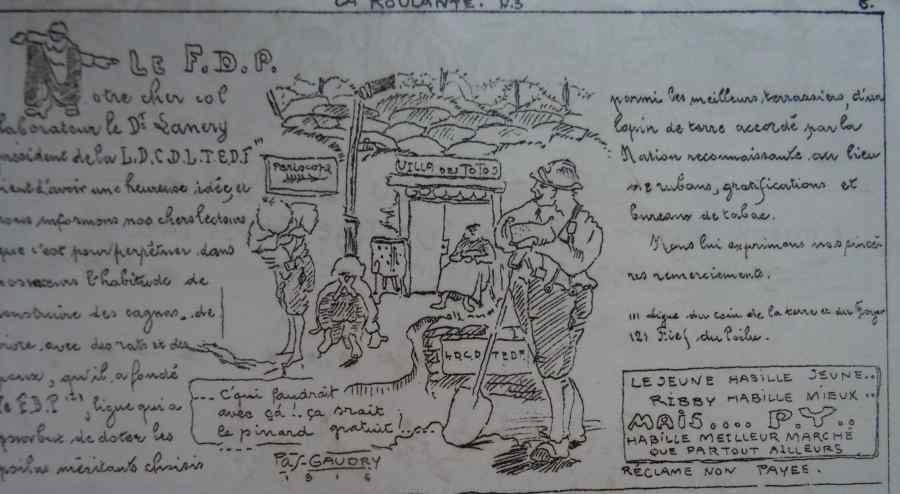 LA ROULANTE. N.3
6.
LE F.D.P.
Notre cher col
laborateur le Dr Lanery
président de la L.D.C.D.L.T.E.D.F (1)
vient d'avoir une heureuse idée, et
nous informons nos chers lecteurs
que c'est pour perpétuer dans
nos mœurs l'habitude de
construire des cagnas, de
vivre, avec des rats et des
poux, qu'il a fondé
le F.D.P (2), ligue qui a
pour but de doter les
poilus méritants choisis
PERISCOPE
VILLA DES TOTOS
L.D.C.D. T.E.D.F.
... C'qui faudrait
avec çà!.. ça s'rait,
le pinard gratuit!...
PAS-GAUDRY
1916
parmi les meilleurs terrassiers, d'un
lopin de terre accordé par la
Nation reconnaissante. au lieu
de rubans, gratifications et
bureaux de tabac.
Nous lui exprimons nos sincè-
res remerciements.
(1) Ligue du coin de la terre et du Foyer
(2) du Poilu.
LEJEUNE HABILLE JEUNE..
RIBBY HABILLE MIEUX..
MAIS.... P.Y..
HABILLE MEILLEUR MARCHÉ
QUE PARTOUT AILLEURS
RÉCLAME NON PAYÉE.